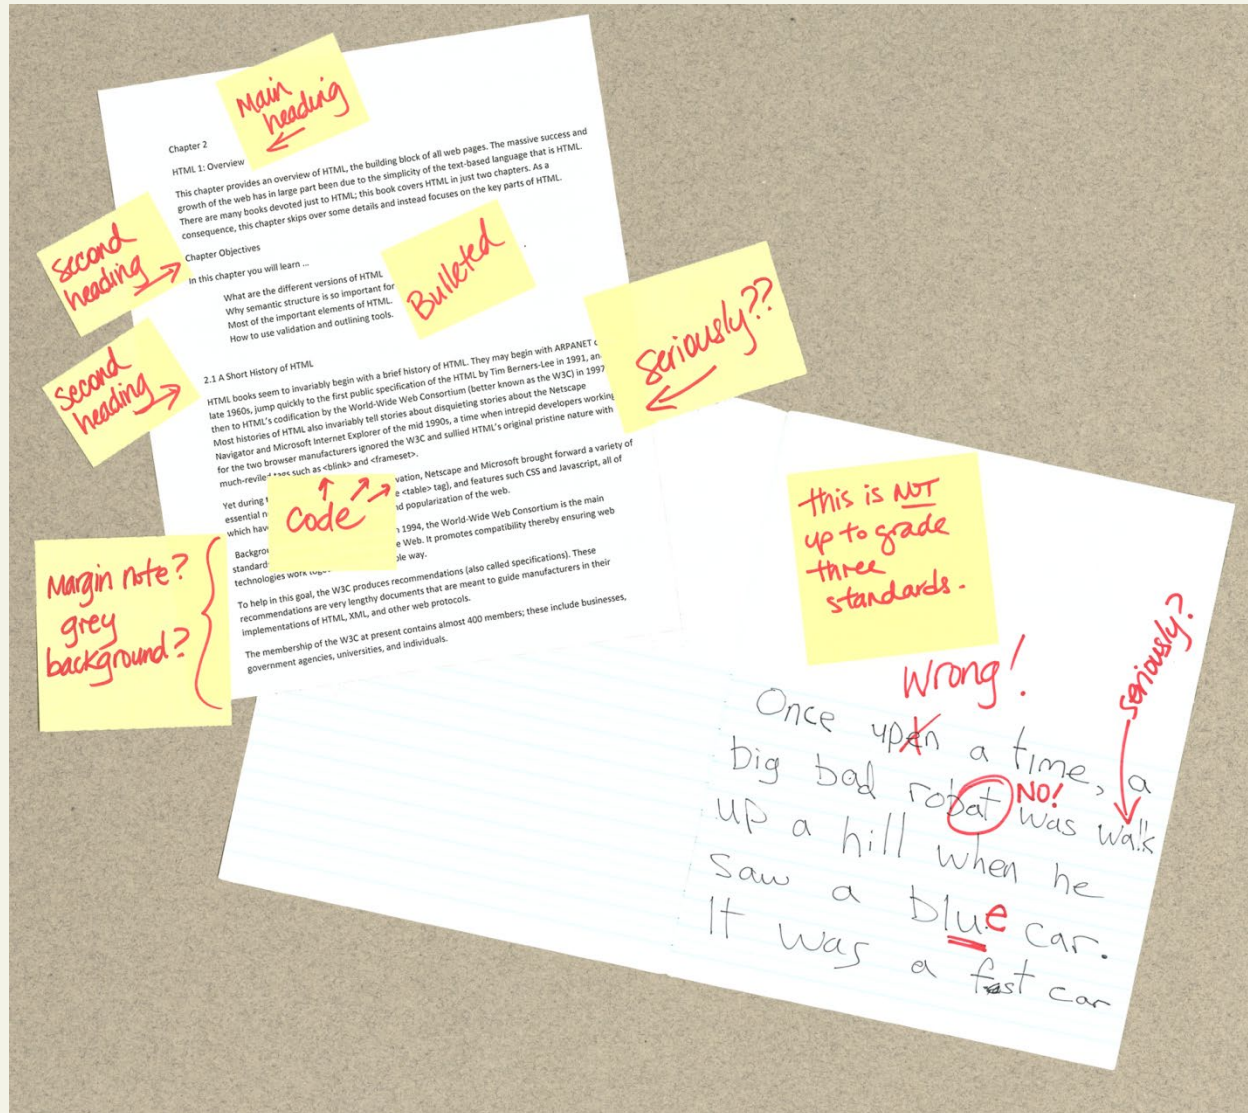 Main
heading
Chapter 2
HTML 1: Overview
This chapter provides an overview of HTML, the building block of all web pages. The massive success and
growth of the web has in large part been due to the simplicity of the text-based language that is HTML.
There are many books devoted just to HTML; this book covers HTML in just two chapters. As a
consequence, this chapter skips over some details and instead focuses on the key parts of HTML.
second
heading
Chapter Objectives
In this chapter you will learn ...
Bulleted
What are the different versions of HTML
Why semantic structure is so important for
Most of the important elements of HTML.
How to use validation and outlining tools.
seriously??
second
heading
2.1 A Short History of HTML
HTML books seem to invariably begin with a brief history of HTML. They may begin with ARPANET
late 1960s, jump quickly to the first public specification of the HTML by Tim Berners-Lee in 1991, an
then to HTML's codification by the World-Wide Web Consortium (better known as the W3C) in 1997
Most histories of HTML also invariably tell stories about disquieting stories about the Netscape
Navigator and Microsoft Internet Explorer of the mid 1990s, a time when intrepid developers working
for the two browser manufacturers ignored the W3C and sullied HTML's original pristine nature with
much-reviled tags such as <blink> and <frameset>.
code
Yet during vation, Netscape and Microsoft brought forward a variety of
essential n e <table> tag), and features such CSS and Javascript, all of
which hav nd popularization of the web.
Margin note?
grey
background?
Backgrou 1994, the World-Wide Web Consortium is the main
standard e Web. It promotes compatibility thereby ensuring web
technologies work ble way.
To help in this goal, the W3C produces recommendations (also called specifications). These
recommendations are very lengthy documents that are meant to guide manufacturers in their
implementations of HTML, XML, and other web protocols.
The membership of the W3C at present contains almost 400 members; these include businesses,
government agencies, universities, and individuals.
this is NOT
up to grade
three
standards.
Wrong!
seriously?
Once upen a time, a
big bad robat NO! was walk
up a hill when he
saw a blue car.
It was a fast car